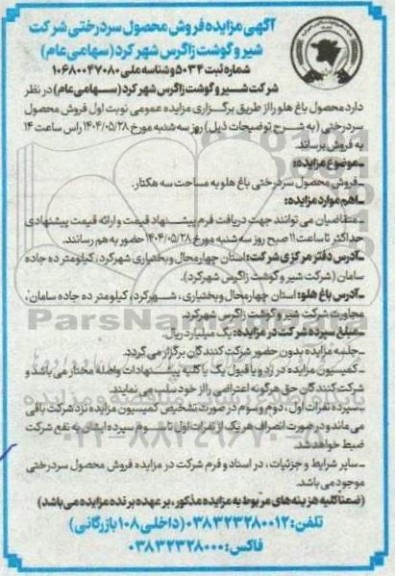 آگهی مزایده فروش محصول سردرختی شرکت
شیر و گوشت زاگرس شهرکرد (سهامی عام)
شماره ثبت ۵۰۳۴ و شناسه ملی ۱۰۶۸۰۰۴۷۰۸۰
شرکت شیر و گوشت زاگرس شهرکرد (سهامی عام) در نظر
دارد محصول باغ هلو را از طریق برگزاری مزایده عمومی نوبت اول فروش محصول
سردرختی (به شرح توضیحات ذیل) روز سه شنبه مورخ ۱۴۰۴/۰۵/۲۸ راس ساعت ۱۴
به فروش برساند.
ـ موضوع مزایده:
ـ فروش محصول سردرختی باغ هلو به مساحت سه هکتار.
ـ اهم موارد مزایده:
ـ متقاضیان می توانند جهت دریافت فرم پیشنهاد قیمت و ارائه قیمت پیشنهادی
حداکثر تا ساعت ۱۱ صبح روز سه شنبه مورخ ۱۴۰۴/۰۵/۲۸ حضور به هم رسانند.
ـ آدرس دفتر مرکزی شرکت: استان چهارمحال و بختیاری شهرکرد، کیلومتر ده جاده
سامان (شرکت شیر و گوشت زاگرس شهرکرد).
ـ آدرس باغ هلو: استان چهارمحال و بختیاری، شهرکرد، کیلومتر ده جاده سامان،
مجاورت شرکت شیر و گوشت زاگرس شهرکرد.
ـ مبلغ سپرده شرکت در مزایده: یک میلیارد ریال.
ـ جلسه مزایده بدون حضور شرکت کنندگان برگزار می گردد.
ـ کمیسیون مزایده در رد و یا قبول یک یا کلیه پیشنهادات واصله مختار می باشد و
شرکت کنندگان حق هرگونه اعتراضی را از خود سلب می نمایند.
ـ سپرده نفرات اول، دوم و سوم در صورت تشخیص کمیسیون مزایده نزد شرکت باقی
می ماند و در صورت انصراف هر یک از نفرات اول تا سوم سپرده ایشان به نفع شرکت
ضبط خواهد شد.
ـ سایر شرایط و جزئیات، در اسناد و فرم شرکت در مزایده فروش محصول سردرختی
موجود می باشد.
(ضمنا کلیه هزینه های مربوط به مزایده مذکور، بر عهده برنده مزایده می باشد)
تلفن: ۰۳۸۳۲۳۲۸۰۰۱۲ (داخلی ۱۰۸ بازرگانی)
فاکس: ۰۳۸۳۲۳۲۸۰۰۰